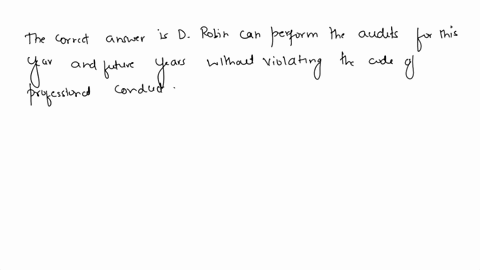 The correct answer is D. Robin can perform the audits for this
year and future years without violating the code of
professional conduct.